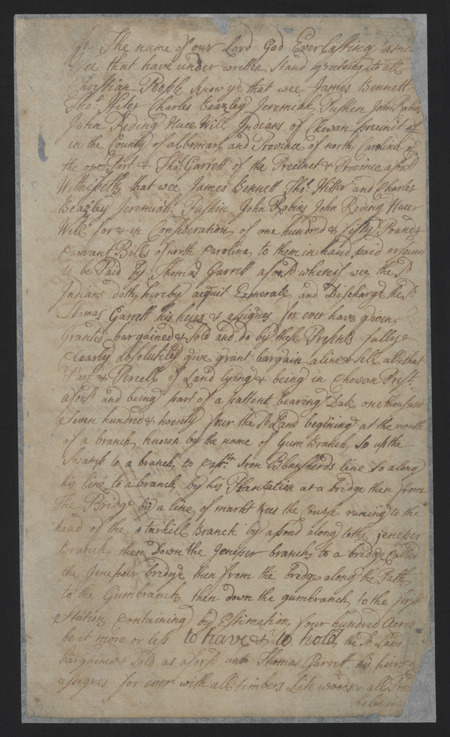 The name of our Lord God Everlasting amen
that have under written
Christian People Know ye that wee James Bennett
Thos. Hiter Charles Beazley Jeremiah Pushin John Robins
John Reding Nuce Will Indians of Chowan Precinct
in the County of albemarle and Province of north Carolina of
the one part & Thos. Garrett of the Precinct & Province aforsd
Wittnesseth that wee James Bennett Thos. Hiter and Charles
Beazley Jeremiah Pushin John Robins John Reding Nuce
Will for & in Consideration of one hundred & fifty Pounds
Currant Bills of north Carolina to them in hand paid or
to be Paid by Thomas Garrett aforsd whereof wee the sd
Indians doth hereby acquit Exonerate and Discharge the sd
Thomas Garrett his heirs & assignes for ever have given
Granted bargained & sold and do by these Presents fully
Clearly absolutely give grant bargain aline & sell all that
Part & Percell of Land lying & being in Chowan Prect.
aforsd and being part of a pattent bearing Date one thousand
seven hundred & twenty four the sd Land begining at the mouth
of a branch known by the name of Gum Branch, So up the
Swamp to a branch, to Aron Blansherds line so along
his line to a branch by his Plantation at a bridge then from
the Bridge by a line of markt trees the runing to the
head of the Branch by a pond along to the Jeneper
Branch, then down the Jeneper branch to a bridge
the Jeneper bridge, then from the bridge along the Path
to the Gumbranch, then down the gumbranch, to the first
Station, containing by Estimation four hundred Acres
be it more or less to have & to hold, the sd Land
bargained & Sold as aforsd unto Thomas Garrett his heirs &
assignes for ever with all timbers woods & all